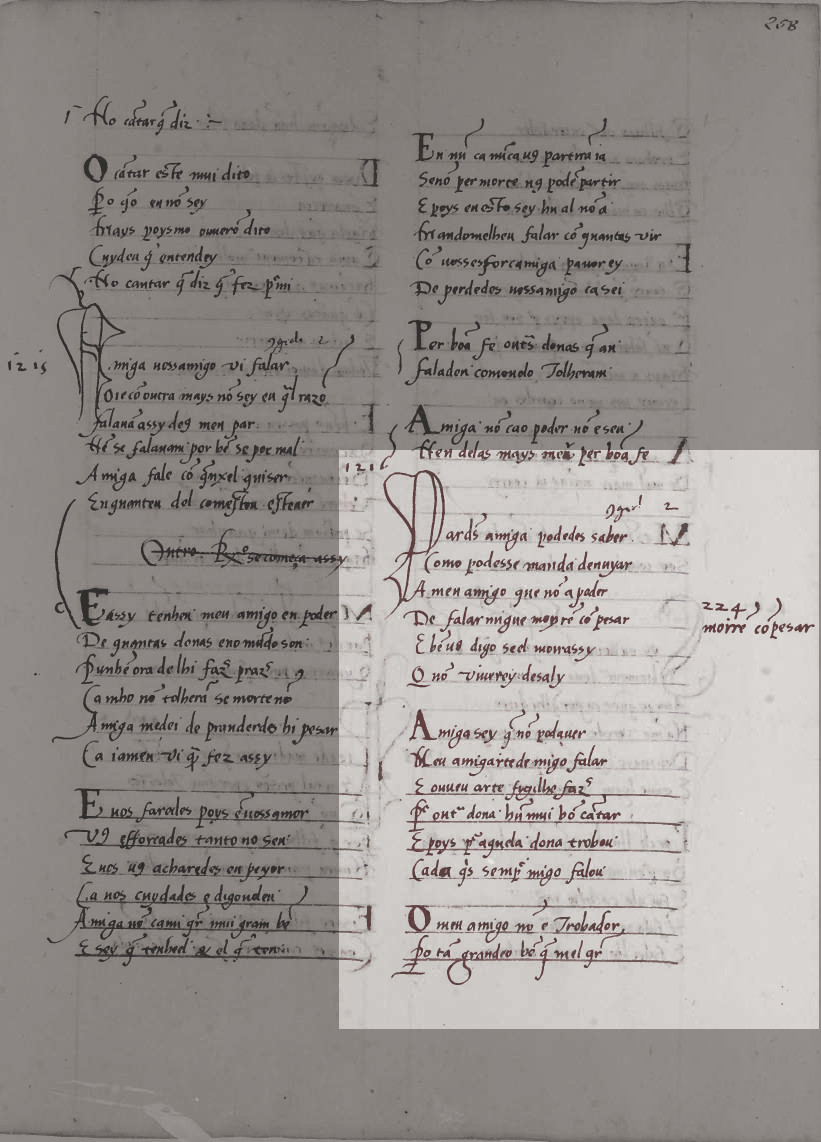 258
No cātar q̃ diz
O cātar este mui dito
Po q̃o eu nō sey
Mays poys mo ouuerō dito
Cuydey q̃ entendey
No cantar q̃ diz q̃ fez p̃ mi
1215
Amiga uossamigo vi falar
Oie cō outra mays nō sey en q̃l razō
falauā assy de9 men par
Nē se falauam por bē se por mal
Amiga fale cō q̃nxel quiser
Enquanteu del comestou esteuer
E assy tenheu meu amigo en poder
De quantas donas eno mūdo son
Ca mho nō tolherā se morte nō
Amiga medei de pranderdes hi pesar
Ca iamen vi q̃ fez assy
E uos faredes poys ē uossamor
V9 efforcades tanto no seu
E uos u9 acharedes en peyor
Ca uos cuydades e digouolen
Amiga nō cami q̃r mui gram bē
E sey q̃ tenheu
En mī ca nūca u9 partirā ia
Senō per morte nō u9 podē partir
E poys eu esto sey hu al nō a
Mandomelheu falar cō quantas vir
Cō uossesforcamiga pauor ey
De perdedes uossamigo ca sei
Per boā fe outs̃ donas q̃ an
faladen comouolo Tolheram
Amiga nō cao poder nō e seu
Nen delas mays meu per boā fe
1216
Par d's amiga podedes saber
Como podesse mandā denuyar
A meu amigo que nō a poder
De falar migue moyrē cō pesar
E bē u9 digo se el morrassy
Q nō viuerey desaly
224
moirrē cō pesar
Amiga sey q̃ nō podauer
Meu amigarte de migo falar
E ouueu arte fygilhe faz'
Pr out' dona hūn mui bō cātar
E poys pr aquela dona trobou
Cada q̃s semp̃ migo falou
O meu amigo nō e Trobador
Po tā grandeo bē q̃ mel q̃r